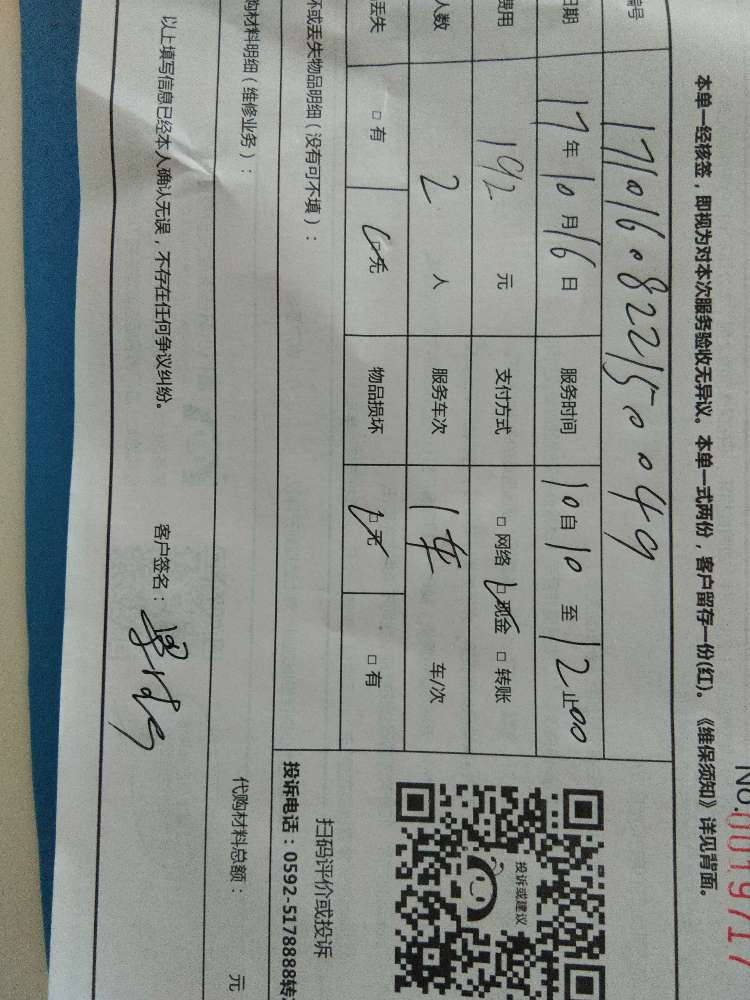 No.0019717
本单一经核签，即视为对本次服务验收无异议。本单一式两份，客户留存一份(红)。《维保须知》详见背面。
编号 1710160822150049
日期 17年10月16日 服务时间 10自10至12止00
费用 192元 支付方式 □网络 □现金 □转账
人数 2人 服务车次 1车 车/次
丢失 □有 □无 物品损坏 □无 □有
坏或丢失物品明细（没有可不填）：
投诉或建议
扫码评价或投诉
投诉电话：0592-5178888转
购材料明细（维修业务）：
代购材料总额： 元
以上填写信息已经本人确认无误，不存在任何争议纠纷。 客户签名：